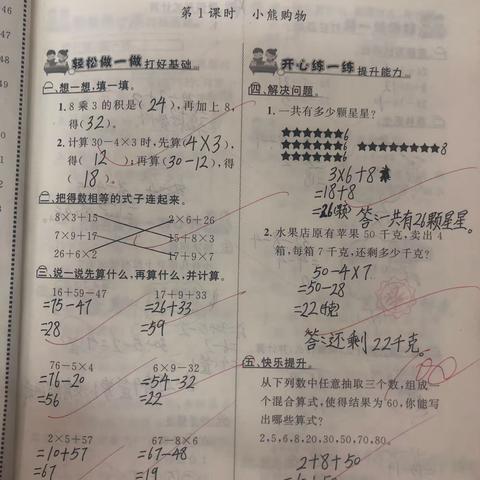 第1课时 小熊购物
46
47
48
49
轻松做一做 打好基础
一、想一想,填一填。
1. 8乘3的积是(24),再加上8,
得(32)。
2. 计算30-4×3时,先算(4×3),
得(12);再算(30-12),得
(18)。
二、把得数相等的式子连起来。
8×3+15 2×6+26
7×9+17 15+8×3
26+6×2 17+9×7
三、说一说先算什么,再算什么,并计算。
16+59-47 17+9+33
=75-47 =26+33
=28 =59
76-5×4 6×9-32
=76-20 =54-32
=56 =22
2×5+57 67-8×6
=10+57 =67-48
=67 =19
开心练一练 提升能力
四、解决问题。
1. 一共有多少颗星星?
★★★★★★6
★★★★★★6 ★★★★★★★★8
★★★★★★6
3×6+8
=18+8
=26颗 答:一共有26颗星星。
2. 水果店原有苹果50千克,卖出4
箱,每箱7千克,还剩多少千克?
50-4×7
=50-28
=22
答:还剩22千克。
五、快乐提升。
从下列数中任意抽取三个数,组成一
个混合算式,使得结果为60,你能写
出哪些算式?
2,5,6,8,20,30,50,70,80。
2+8+50